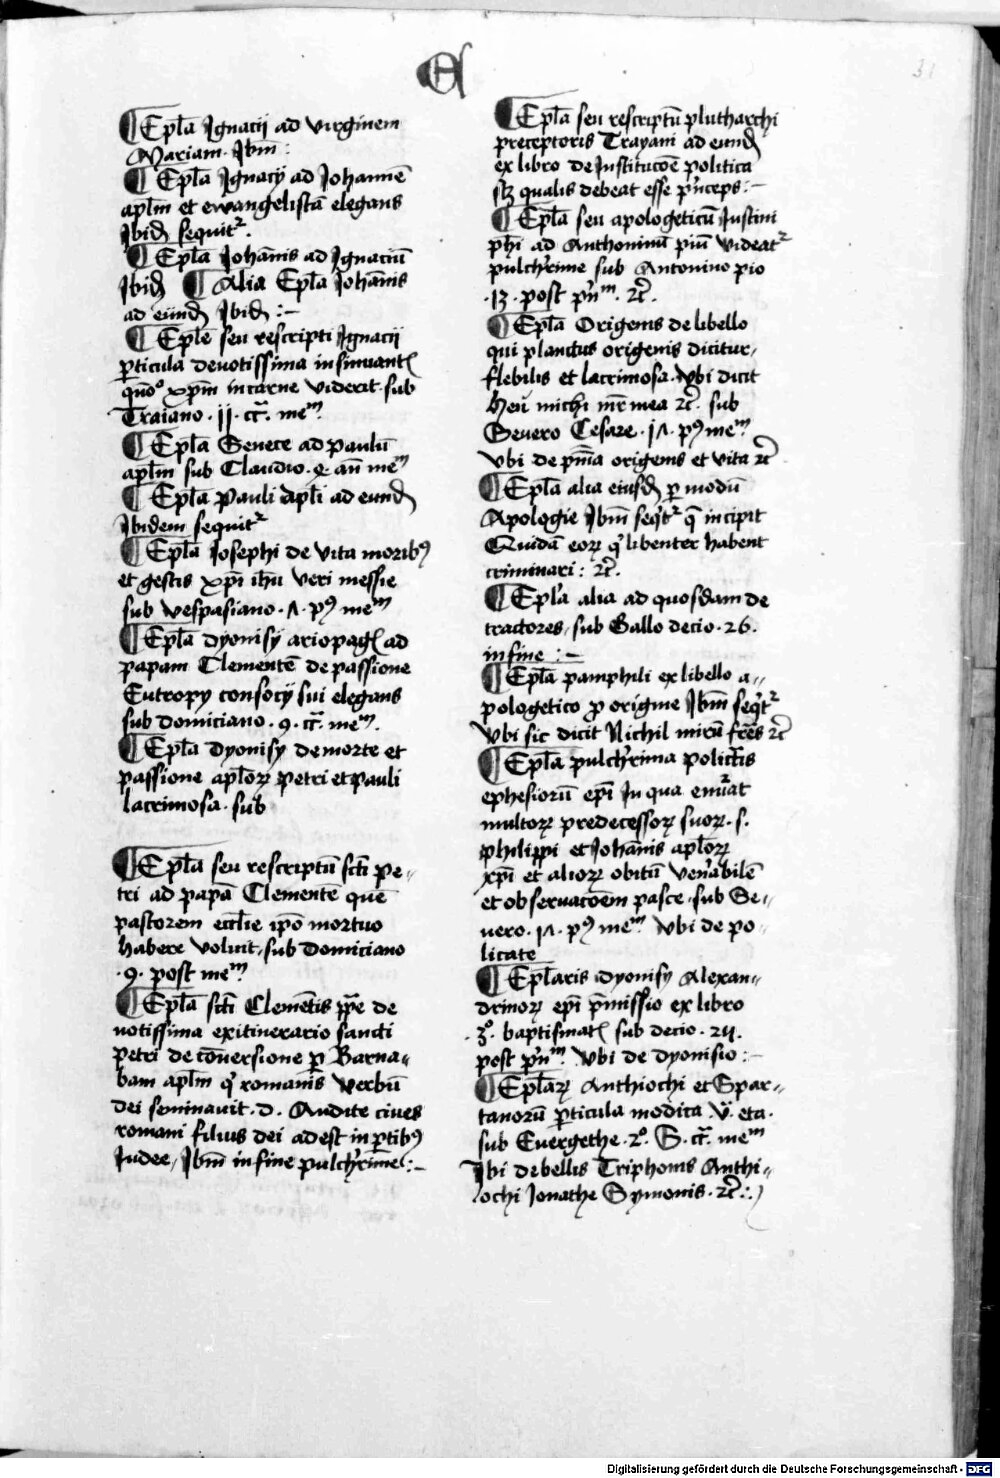 31
¶ Epl̄a Ignacij ad virginem
Mariam. Ibm̄ :
¶ Epl̄a Ignacij ad Johannē
apl̄m et ewangelistā elegans
Ibid sequitr.
¶ Epl̄a Joħanis ad Ignaciū
Ibid ¶ Alia Epl̄a Joħanis
ad eund Ibid :-
¶ Epl̄e seu rescripti Ignacij
ꝑticula deuotissima insinuant
quō xp̄m in carne viderit. sub
Traiano . 11 . cr̄. mem.
¶ Epl̄a Senece ad paulū
apl̄m sub Claudio. 4. an̄ mem
¶ Epl̄a pauli apl̄i ad eund
Ibidem sequitr
¶ Epl̄a Josephi de vita moribꝰ
et gestis xp̄i ihū veri messie
sub vespasiano . ʌ . pꝰ mem
¶ Epl̄a dyonisy ariopag ad
papam Clementē de passione
Eutropy consocij sui elegans
sub domiciano . 9 . cr̄. mem.
¶ Epl̄a dyonisy de morte et
passione apl̄oꝝ petri et pauli
lacrimosa . sub
¶ Epl̄a seu rescriptū sct̄i pe-
tri ad papā Clementē quē
pastorem eccl̄ie ip̄o mortuo
habere voluit, sub domiciano
. 9 . post mem
¶ Epl̄a sct̄i Clemētis pp̄e de
uotissima ex itinerario sancti
petri de cōuersione ꝑ Barna-
bam apl̄m qͥ romanis verbū
dei seminauit . d . Audite ciues
romani filius dei adest in ꝑtibꝰ
Iudee, Ibm̄ in fine pulcħrime :-
¶ Epl̄a seu rescriptū plutharchi
preceptoris Trayani ad eund
ex libro de Institucōe politica
sꝫ qualis debeat esse pͥnceps :-
¶ Epl̄a seu apologeticū Justini
pħi ad Anthoninū piū videatr
pulcħrime sub Antonino pio
. 13 . post pͥnm. ⁊c̄.
¶ Epl̄a Origenis de libello
qui planctus origenis dicitur,
flebilis et lacrimosa. vbi dicit
heu michi mr̄ mea ⁊c̄. sub
Seuero Cesare . 1ʌ . pꝰ mem
vbi de pn̄ia origenis et vita ⁊c̄
¶ Epl̄a alia eiusd ꝑ modū
Apologie Ibm̄ seqͥtr q̄ incipit
Quidā eoꝝ qͥ libenter habent
criminari : ⁊c̄.
¶ Epl̄a alia ad quosdam de
tractores, sub Gallo decio . 26 .
in fine :-
¶ Epl̄a pamphili ex libello a-
pologetico ꝓ origine Ibm̄ seqͥtr
vbi sic dicit Nichil mirū fr̄es ⁊c̄
¶ Epl̄a pulcħrima policr̄tis
ephesiorū ep̄i In qua enūat
multoꝝ predecessoꝝ suoꝝ . s .
philippi et Joħanis apl̄oꝝ
xp̄i et alioꝝ obitū ven̄abilē
et obseruacōem pasce, sub Se-
uero . 1ʌ . pꝰ mem vbi de po-
licrate
¶ Epl̄aris dyonisy Alexan-
drinoꝝ ep̄i pͥmissio ex libro
. 3o. baptismat sub decio . 24 .
post pͥnm. vbi de dyonisio :-
¶ Epl̄aꝝ Anthiochi et Spar-
tanorū ꝑticula modica v̈. eta.
sub Euergethe . 2o. S . cr̄. mem
Ibi de bellis Triphonis Anthi-
ochi Jonathe Symonis . ⁊c̄ :.
Digitalisierung gefördert durch die Deutsche Forschungsgemeinschaft - DFG